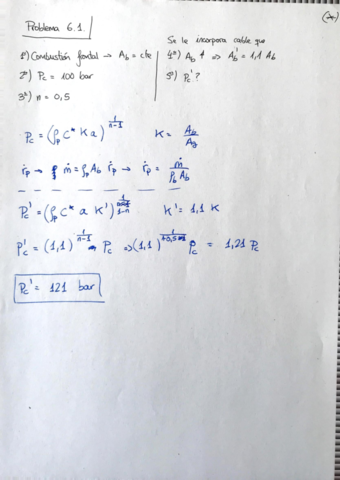 Problema 6.1
(*)
1º) Combustión frontal → A_b = cte
2º) P_c = 100 bar
3º) n = 0,5
Se le incorpora cable que
4º) A_b ↑ ⇒ A_b' = 1,1 A_b
5º) P_c' ?
P_c = (ρ_p C* K a)^{1/(n-1)} K = A_b/A_g
ṙ_p → ṁ = ρ_p A_b ṙ_p → ṙ_p = ṁ/(ρ_p A_b)
P_c' = (ρ_p C* a K')^{1/(1-n)} K' = 1,1 K
P_c' = (1,1)^{1/(n-1)} P_c ⇒ (1,1) P_c = 1,21 P_c
P_c' = 121 bar